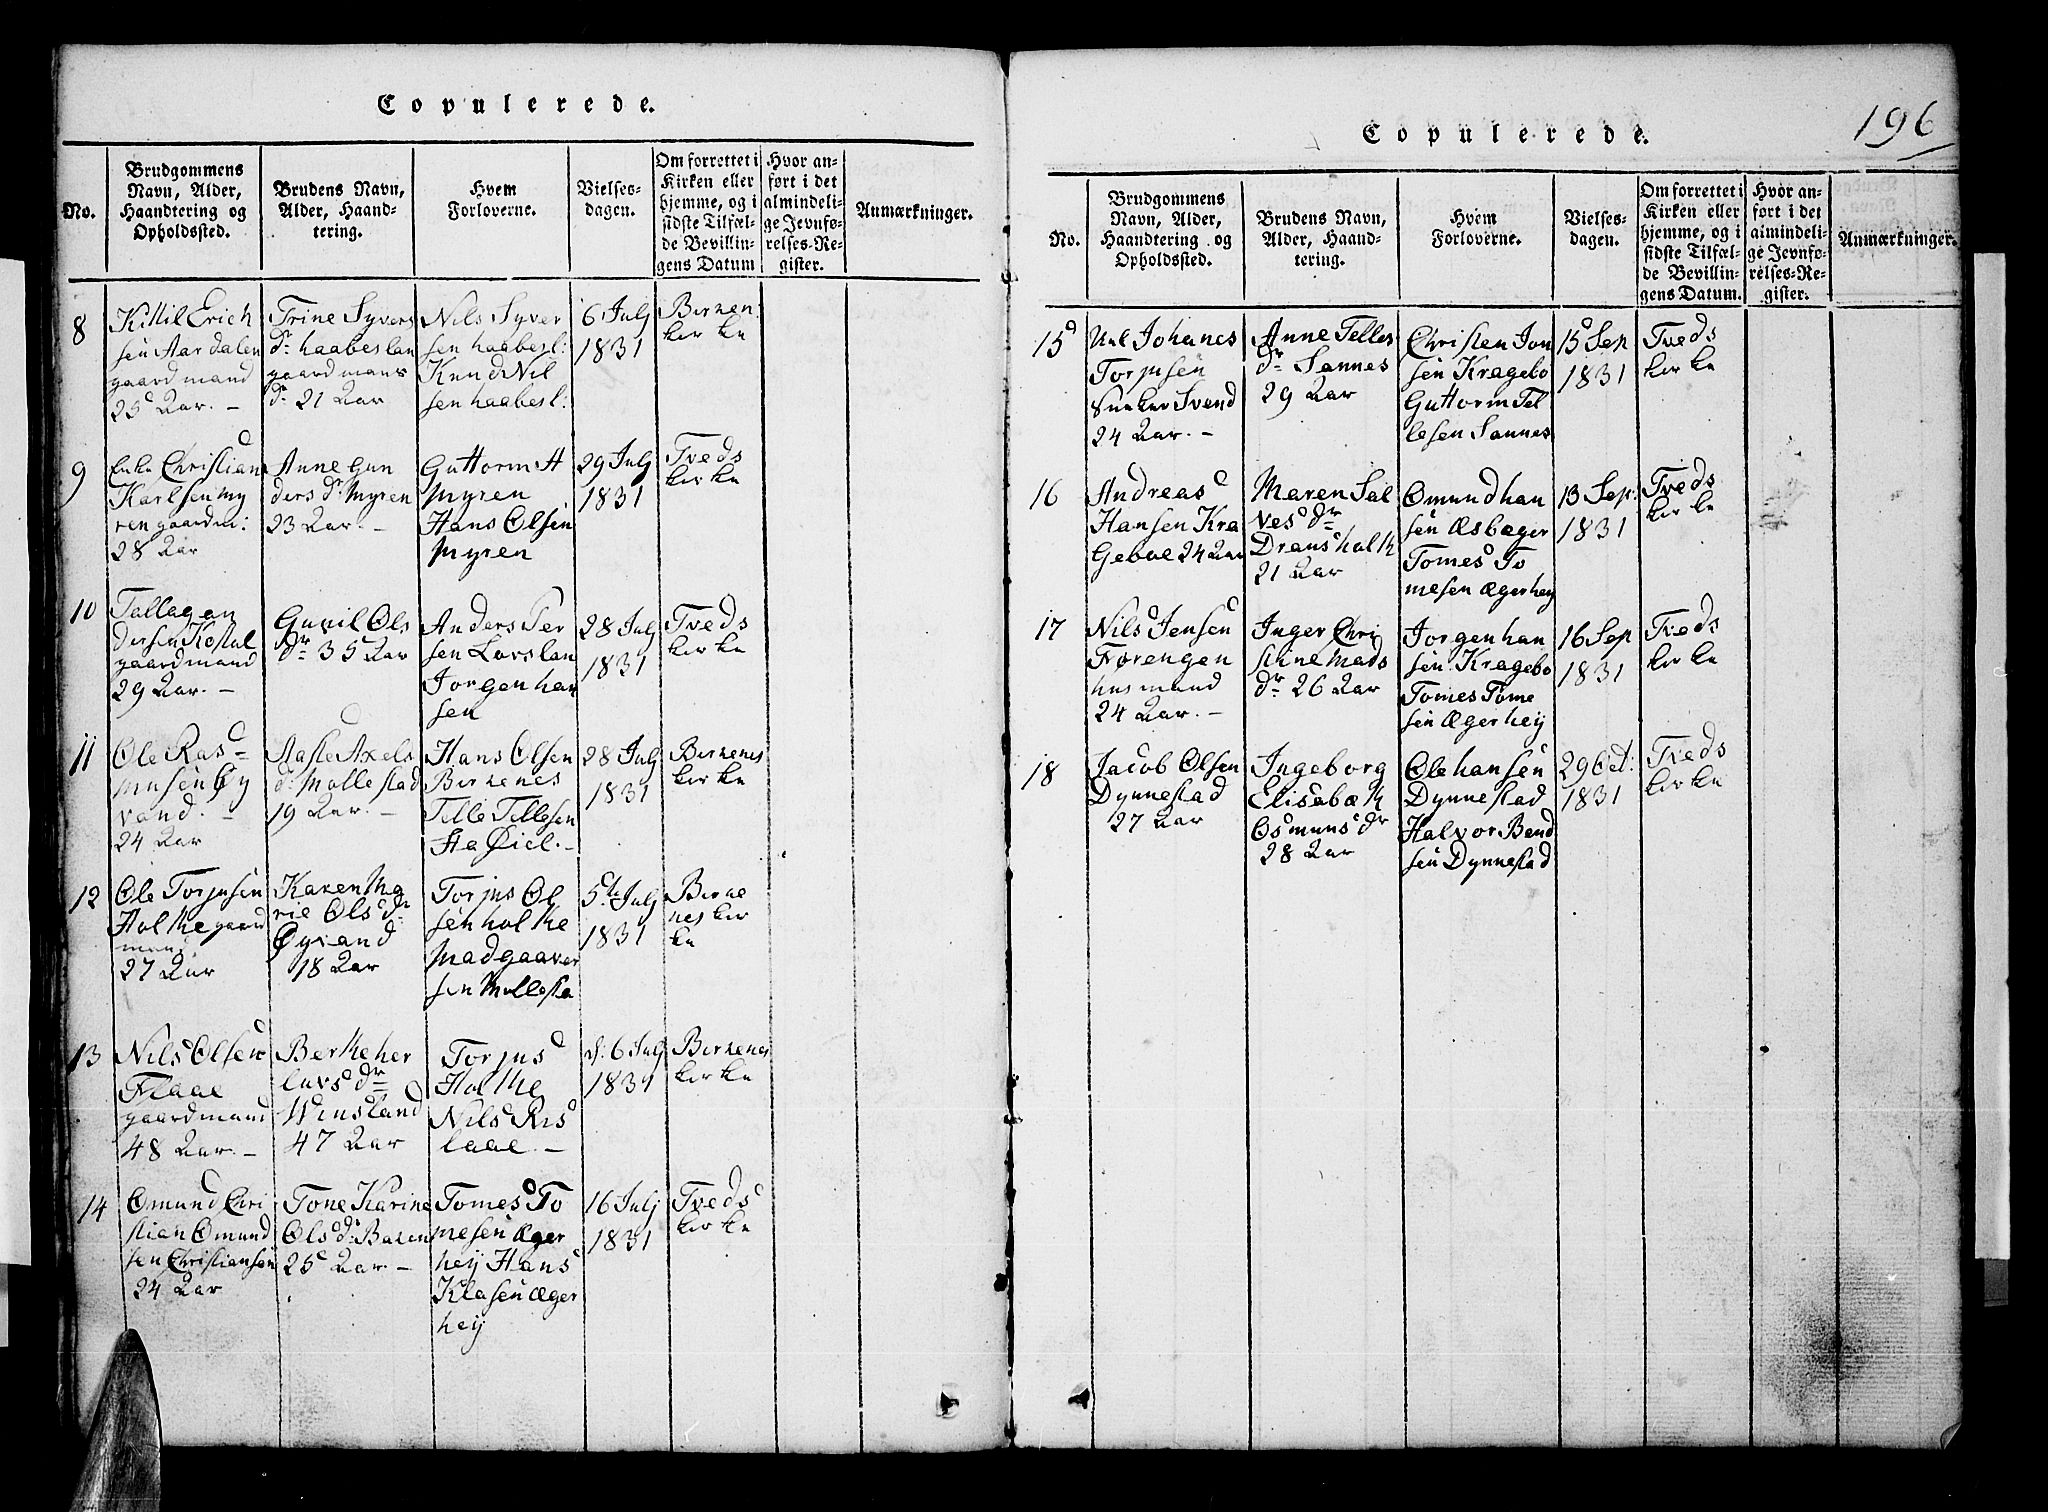 Copulerede.
No.
Brudgommens
Navn, Alder,
Haandtering og
Opholdssted.
Brudens Navn,
Alder, Haand-
tering.
Hvem
Forloverne.
Vielses-
dagen.
Om forrettet i
Kirken eller
hjemme, og i
sidste Tilfæl-
de Bevillin-
gens Datum
Hvor an-
ført i det
almindeli-
ge Jevnfø-
relses-Re-
gister.
Anmærkninger.
8
Kittil Erich
sen Aardalen
gaardmand
25 Aar. –
Trine Syvers
dr. haabeslan
gaardmans
dr. 21 Aar
Nils Syver
sen haabesl:
Knud Nil
sen haabesl:
6 July
1831
Birken:
kirke
9
Enke Christian
Karlsen My
ren gaardm:
28 Aar
Anne Gun
ders dr Myren
23 Aar. –
Guttorm A
Myren
Hans Olsen
Myren
29 July
1831
Tveds
kirke
10
Tallag an
dersen Kostøl
gaardmand
29 Aar. –
Guvil Ols
dr 35 Aar
Anders Per
sen Lovslan
Jorgen han
sen
28 July
1831
Tveds
kirke
11
Ole Ras=
musen Øy
vand. –
24 Aar
Aasle Axels
dr Mollestad
19 Aar. –
Hans Olsen
Birkenes
Telle Tellesen
28 July
1831
Birkenes
kirke
12
Ole Torjusen
Holthe gaard
mand
27 Aar
Karen Ma
rie Ols dr
Øyvand
18 Aar
Torjus Ol
sen holthe
Madgaaver
sen Mollesta
5te July
1831
Birke
nes kir
ke
13
Nils Olsen
Flaae
gaardmand
48 Aar. –
Berthe her
luvs dr
Winsland
47 Aar
Torjus
Holthe
Nils Ris
laae. –
d: 6 July
1831
Birkenes
kirke
14
Omund Chri
stian Omund
sen Christiansen
24 Aar
Tone Karine
Ols dr Baxen
25 Aar –
Tomes To
mesen Æger
hey Hans
Klasen Æger
hey
16 July
1831
Tveds
kirke
196
Copulerede.
No.
Brudgommens
Navn, Alder,
Haandtering og
Opholdssted.
Brudens Navn,
Alder, Haand-
tering.
Hvem
Forloverne.
Vielses-
dagen.
Om forrettet i
Kirken eller
hjemme, og i
sidste Tilfæl-
de Bevillin-
gens Datum.
Hvor an-
ført i det
almindeli-
ge Jevnfø-
relses-Re-
gister.
Anmærkninger.
15
Johanes
Torjusen
Svend
24 Aar. –
Anne Telles
dr Sannes
29 Aar
Christen Jon
sen Kragebo
Guttorm Tel
lesen Sannes
15 Sep
1831
Tveds
kirke
16
Andreas
Hansen Kra
Geboe 24 Aar
Maren Sal
ves dr
Dransholth
21 Aar
Omund han
sen Æsbæger
Tomes To
mesen Ægerhey
13 Sep:
1831
Tveds
kirke
17
Nils Jensen
Forengen
husmand
24 Aar. –
Inger Chri
stine Mads
dr 26 Aar
Jorgen han
sen Kragebo
Tomes Tome
sen Ægerhey
16 Sep
1831
Tveds
kirke
18
Jacob Olsen
Dynnestad
27 Aar
Ingeborg
Elisabæth
Osmuns dr
28 Aar
Ole hansen
Dynnestad
Halvor Bend
sen Dynnestad
29 Oct:
1831
Tveds
kirke